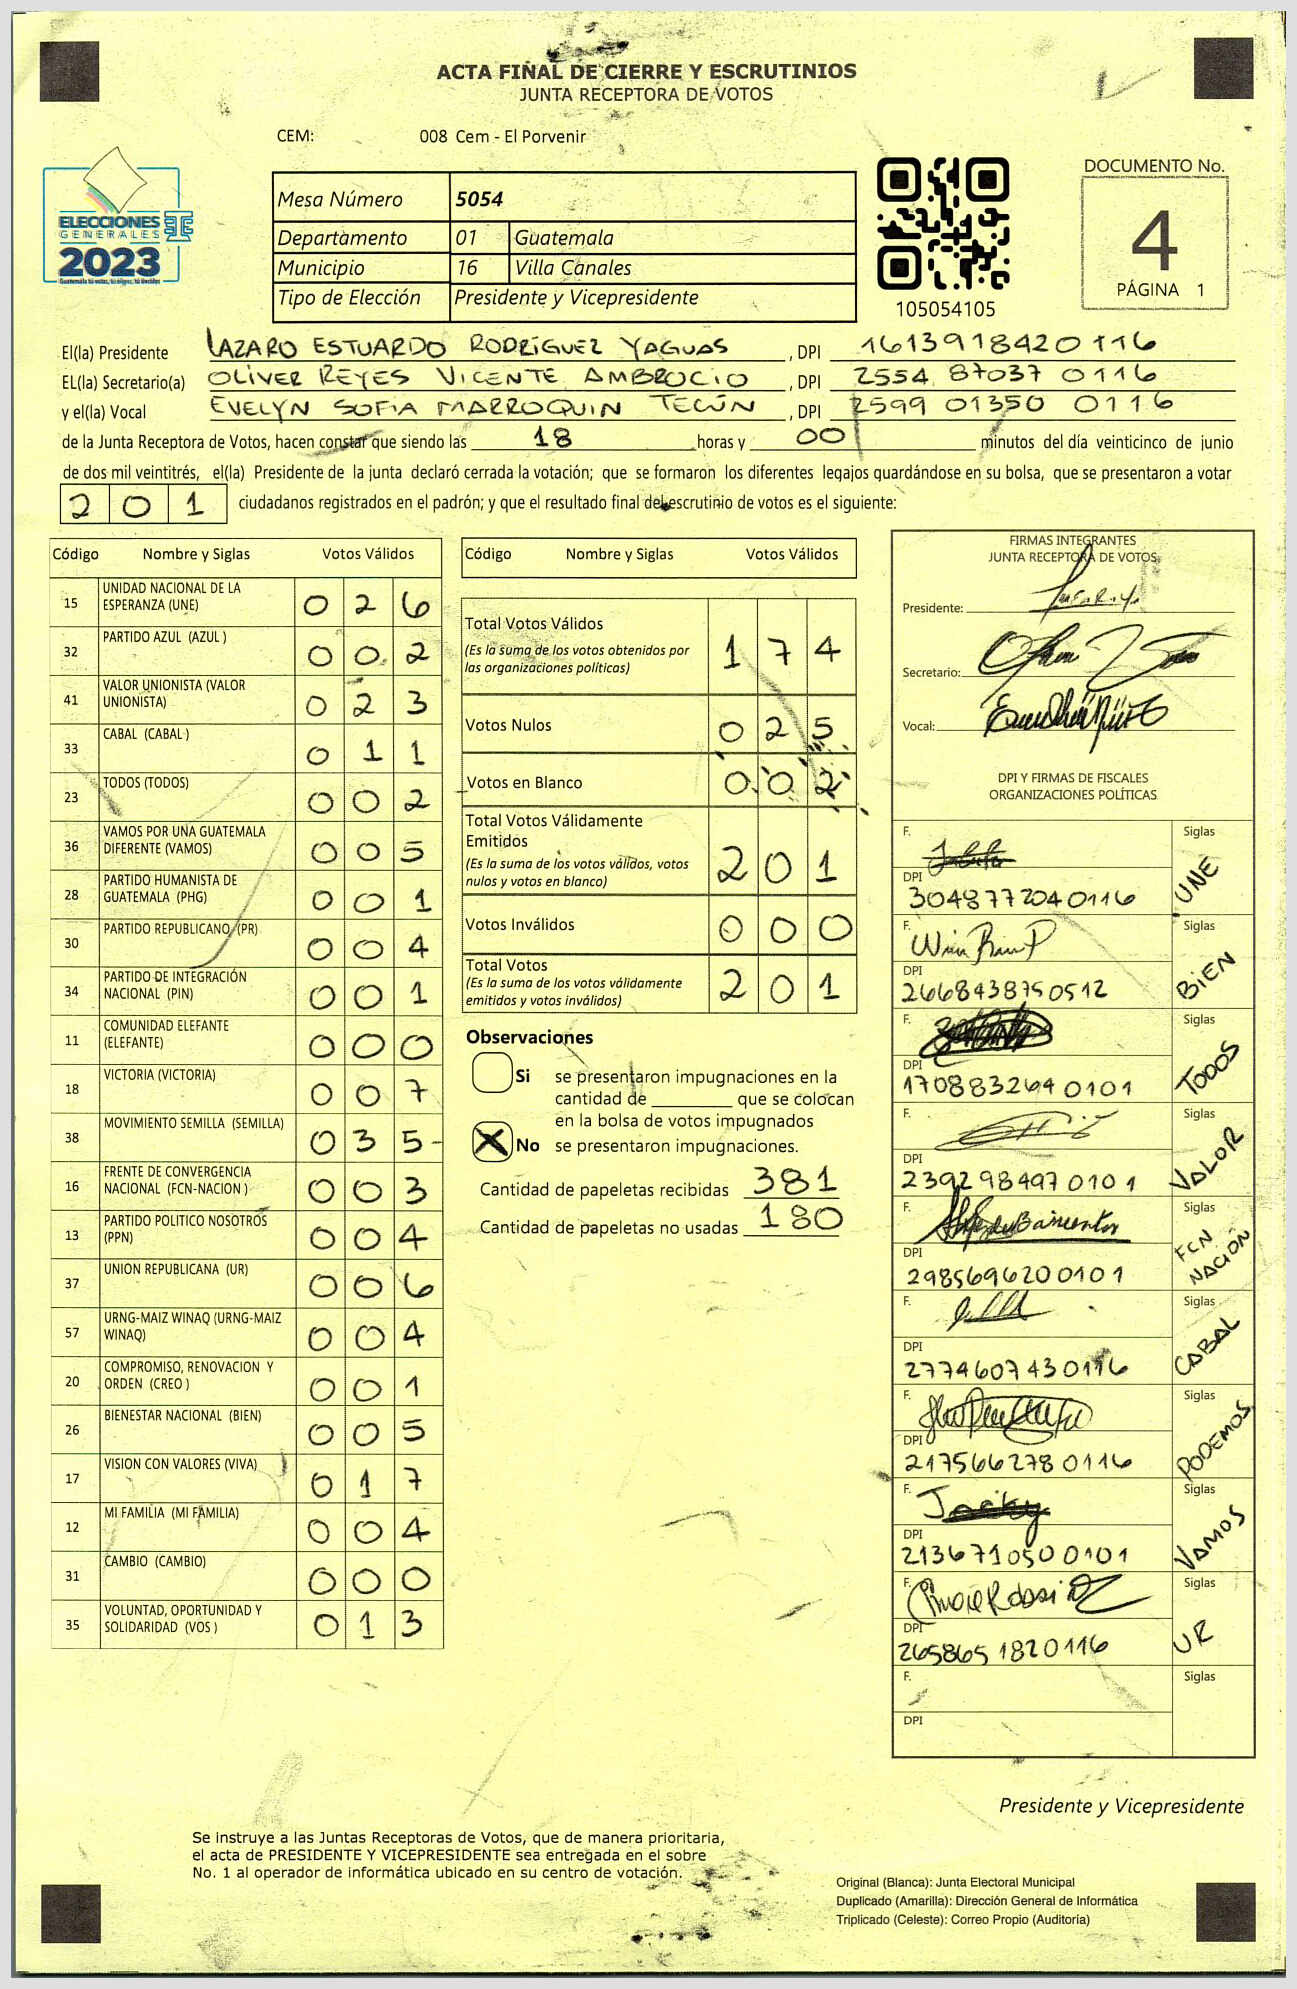 ACTA FINAL DE CIERRE Y ESCRUTINIOS
JUNTA RECEPTORA DE VOTOS
CEM: 008 Cem - El Porvenir
ELECCIONES
GENERALES
2023
Guatemala tú votas, tú eliges, tú decides
Mesa Número 5054
Departamento 01 Guatemala
Municipio 16 Villa Canales
Tipo de Elección Presidente y Vicepresidente
105054105
DOCUMENTO No.
4
PÁGINA 1
El(la) Presidente LAZARO ESTUARDO RODRÍGUEZ YAGUAS, DPI 1613918420116
EL(la) Secretario(a) OLIVER REYES VICENTE AMBROCIO, DPI 2554 87037 0116
y el(la) Vocal EVELYN SOFIA MARROQUIN TECÚN, DPI 2599 01350 0116
de la Junta Receptora de Votos, hacen constar que siendo las 18 horas y 00 minutos del día veinticinco de junio
de dos mil veintitrés, el(la) Presidente de la junta declaró cerrada la votación; que se formaron los diferentes legajos guardándose en su bolsa, que se presentaron a votar
201 ciudadanos registrados en el padrón; y que el resultado final del escrutinio de votos es el siguiente:
Código Nombre y Siglas Votos Válidos
15 UNIDAD NACIONAL DE LA ESPERANZA (UNE) 026
32 PARTIDO AZUL (AZUL ) 002
41 VALOR UNIONISTA (VALOR UNIONISTA) 023
33 CABAL (CABAL ) 011
23 TODOS (TODOS) 002
36 VAMOS POR UNA GUATEMALA DIFERENTE (VAMOS) 005
28 PARTIDO HUMANISTA DE GUATEMALA (PHG) 001
30 PARTIDO REPUBLICANO (PR) 004
34 PARTIDO DE INTEGRACIÓN NACIONAL (PIN) 001
11 COMUNIDAD ELEFANTE (ELEFANTE) 000
18 VICTORIA (VICTORIA) 007
38 MOVIMIENTO SEMILLA (SEMILLA) 035-
16 FRENTE DE CONVERGENCIA NACIONAL (FCN-NACION ) 003
13 PARTIDO POLITICO NOSOTROS (PPN) 004
37 UNION REPUBLICANA (UR) 006
57 URNG-MAIZ WINAQ (URNG-MAIZ WINAQ) 004
20 COMPROMISO, RENOVACION Y ORDEN (CREO ) 001
26 BIENESTAR NACIONAL (BIEN) 005
17 VISION CON VALORES (VIVA) 017
12 MI FAMILIA (MI FAMILIA) 004
31 CAMBIO (CAMBIO) 000
35 VOLUNTAD, OPORTUNIDAD Y SOLIDARIDAD (VOS ) 013
Código Nombre y Siglas Votos Válidos
Total Votos Válidos 174
(Es la suma de los votos obtenidos por
las organizaciones políticas)
Votos Nulos 025
Votos en Blanco 002
Total Votos Válidamente
Emitidos 201
(Es la suma de los votos válidos, votos
nulos y votos en blanco)
Votos Inválidos 000
Total Votos 201
(Es la suma de los votos válidamente
emitidos y votos inválidos)
Observaciones
Si se presentaron impugnaciones en la
cantidad de ________ que se colocan
en la bolsa de votos impugnados
X No se presentaron impugnaciones.
Cantidad de papeletas recibidas 381
Cantidad de papeletas no usadas 180
FIRMAS INTEGRANTES
JUNTA RECEPTORA DE VOTOS
Presidente:
Secretario:
Vocal:
DPI Y FIRMAS DE FISCALES
ORGANIZACIONES POLÍTICAS
F. Siglas
DPI 3048772040116 UNE
F. Siglas
DPI 2668438750512 BIEN
F. Siglas
DPI 1708832640101 TODOS
F. Siglas
DPI 2392984970101 VALOR
F. Siglas
DPI 2985696200101 FCN NACIÓN
F. Siglas
DPI 2774607430116 CABAL
F. Siglas
DPI 2175662780116 PODEMOS
F. Jacky Siglas
DPI 2136710500101 VAMOS
F. Siglas
DPI 2658651820116 UR
F. Siglas
DPI
Presidente y Vicepresidente
Se instruye a las Juntas Receptoras de Votos, que de manera prioritaria,
el acta de PRESIDENTE Y VICEPRESIDENTE sea entregada en el sobre
No. 1 al operador de informática ubicado en su centro de votación.
Original (Blanca): Junta Electoral Municipal
Duplicado (Amarilla): Dirección General de Informática
Triplicado (Celeste): Correo Propio (Auditoría)